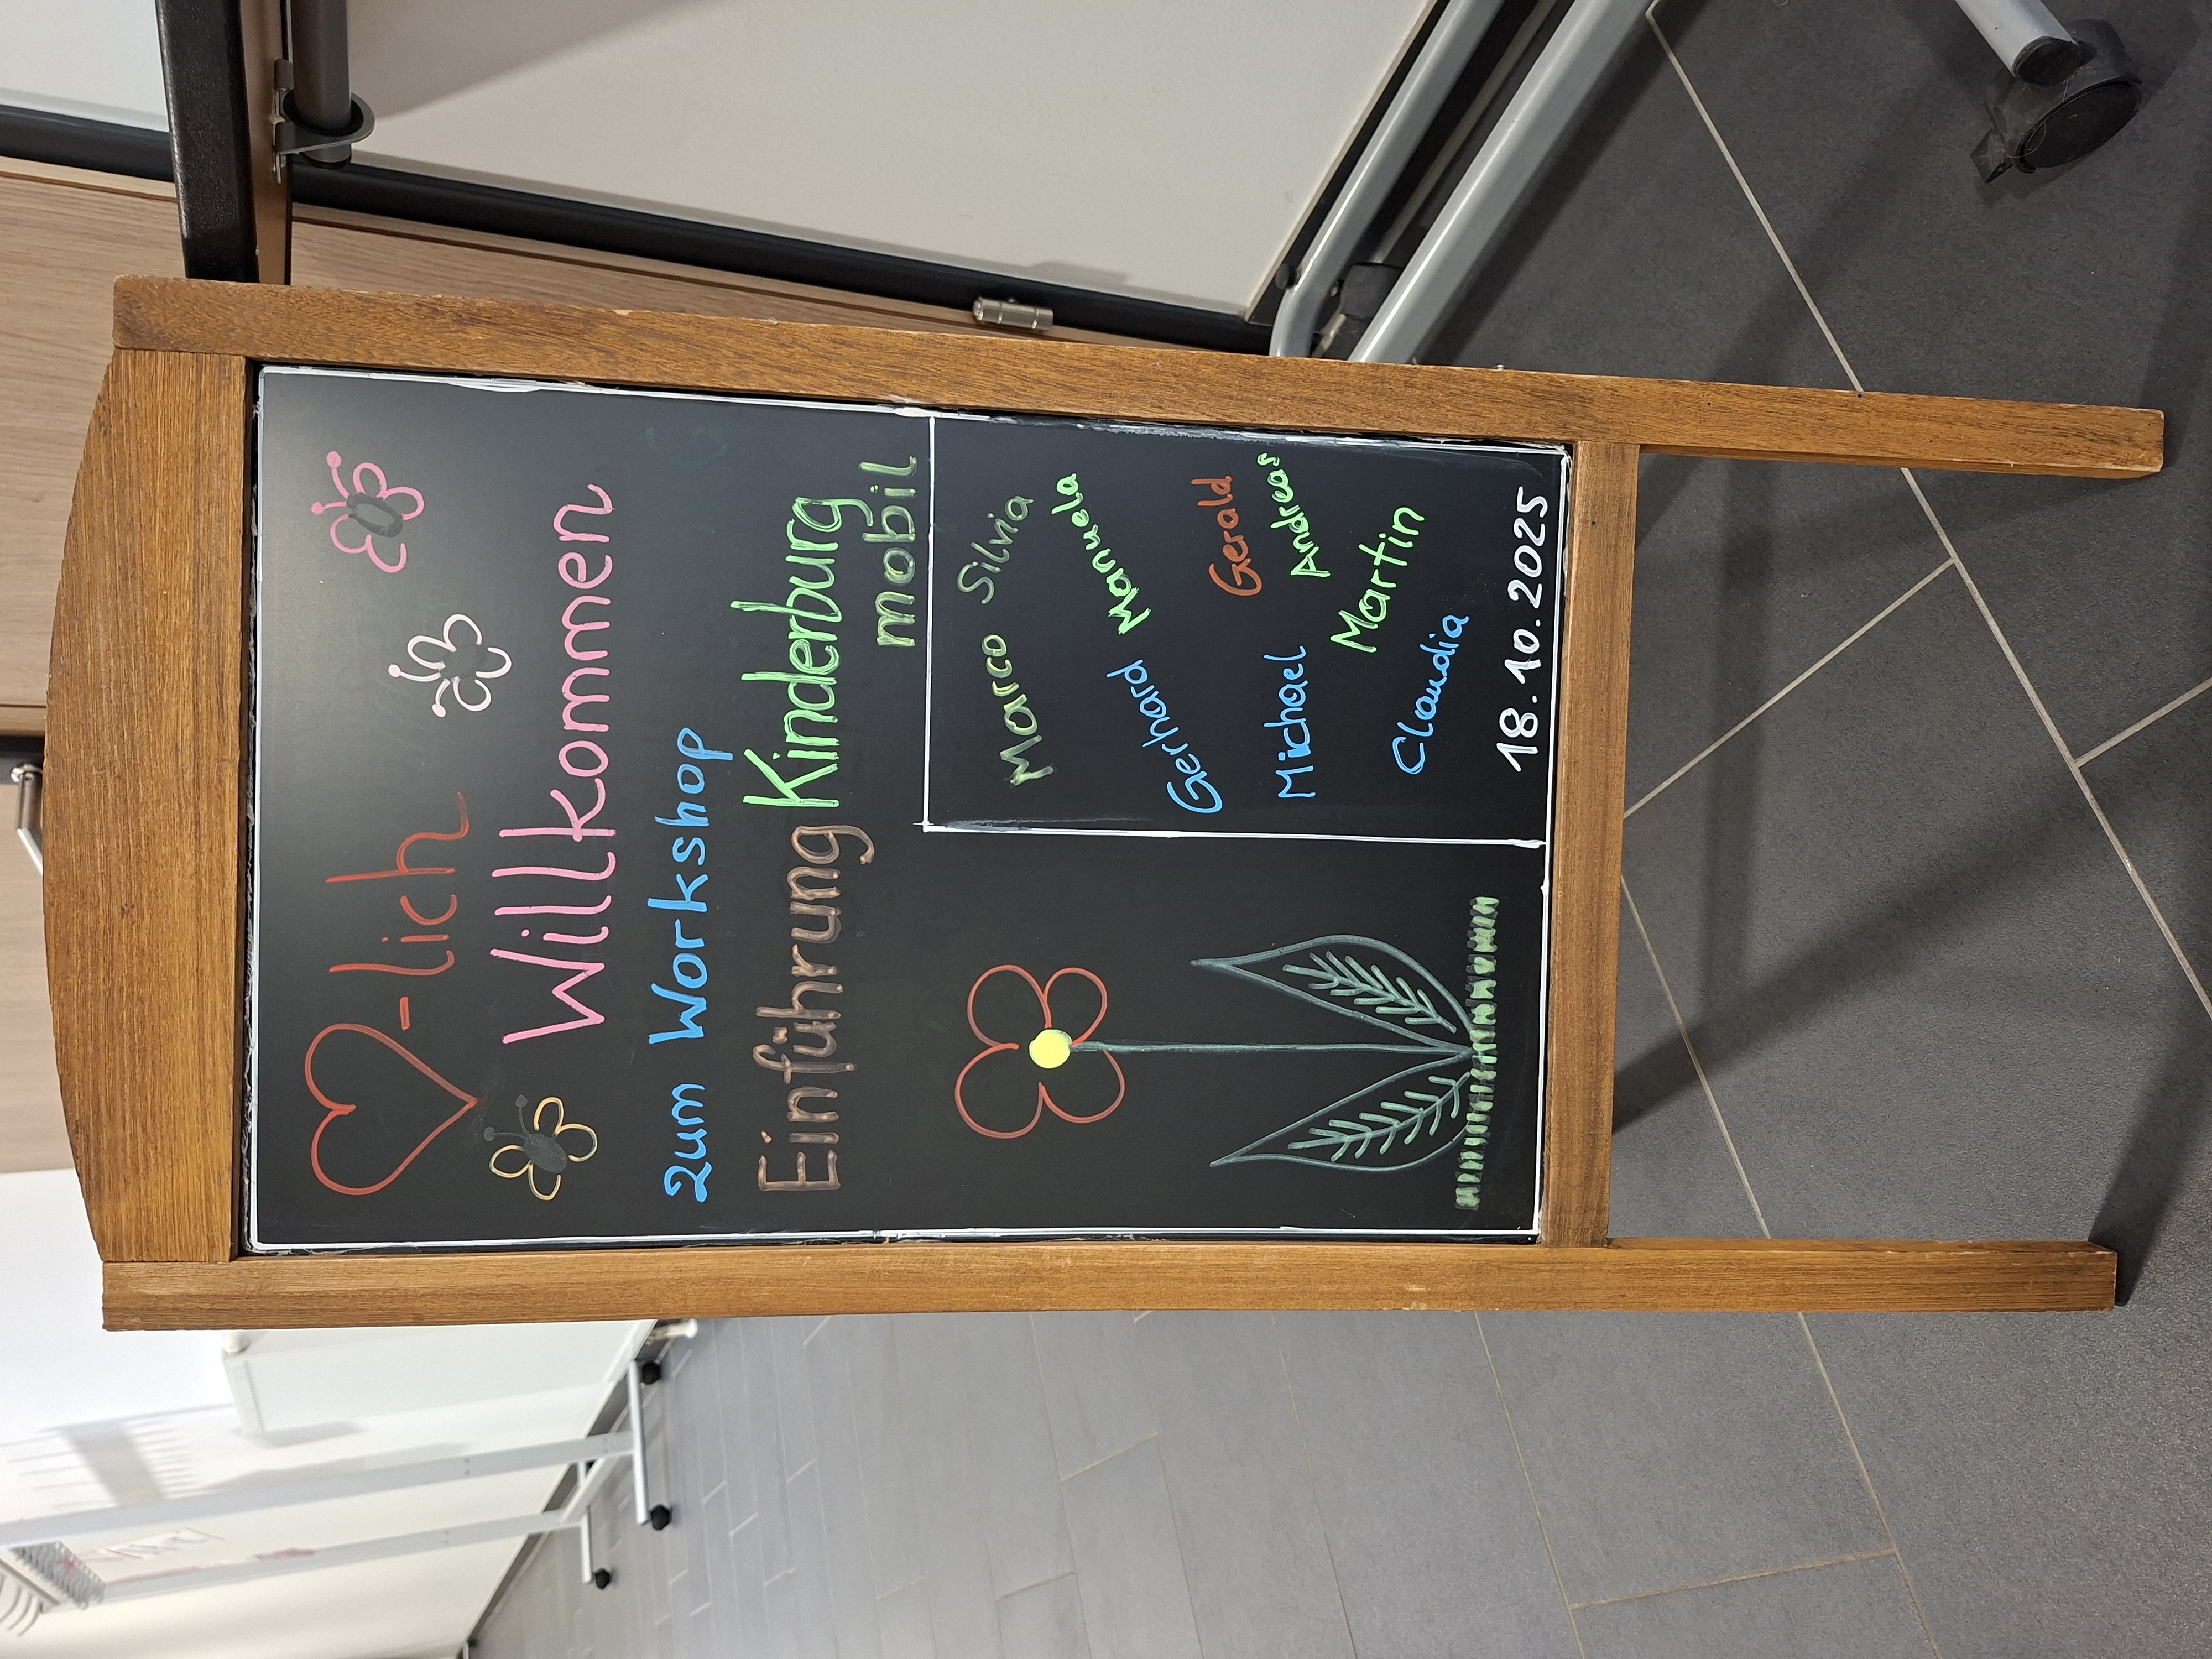 -lich
Willkommen
zum Workshop
Einführung Kinderburg
mobil
Marco Silvia
Gerhard Manuela
Michael Gerald
Andreas
Claudia Martin
18.10.2025